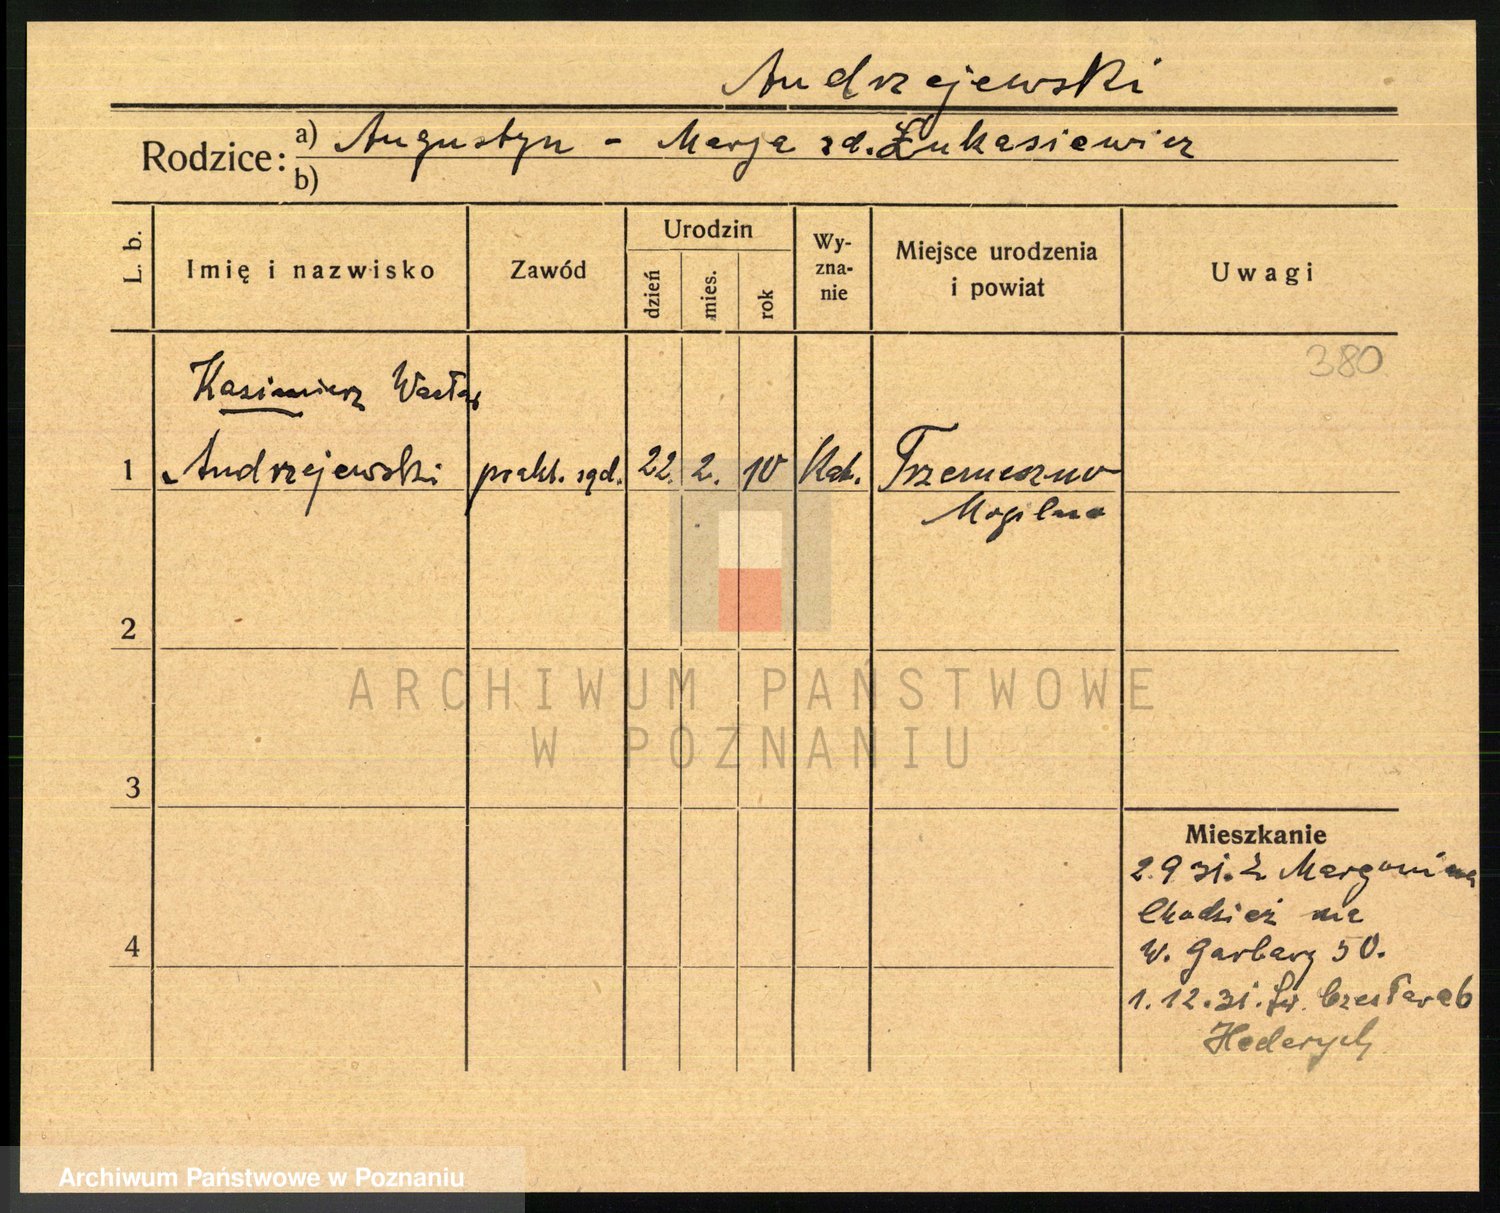 Andrzejewski
Rodzice: a) Augustyn - Marja zd. Łukasiewicz
b)
L. b. Imię i nazwisko Zawód Urodzin dzień mies. rok Wy-zna-nie Miejsce urodzenia i powiat Uwagi
380
Kazimierz Wacław
1 Andrzejewski prakt. sąd. 22. 2. 10 Kat. Trzemeszno
Mogilno
2
ARCHIWUM PAŃSTWOWE
W POZNANIU
3
Mieszkanie
2.9 31. z Margonina
Chodzież na
W. Garbary 50.
4
1.12.31. Św. Czesława 6
Archiwum Państwowe w Poznaniu